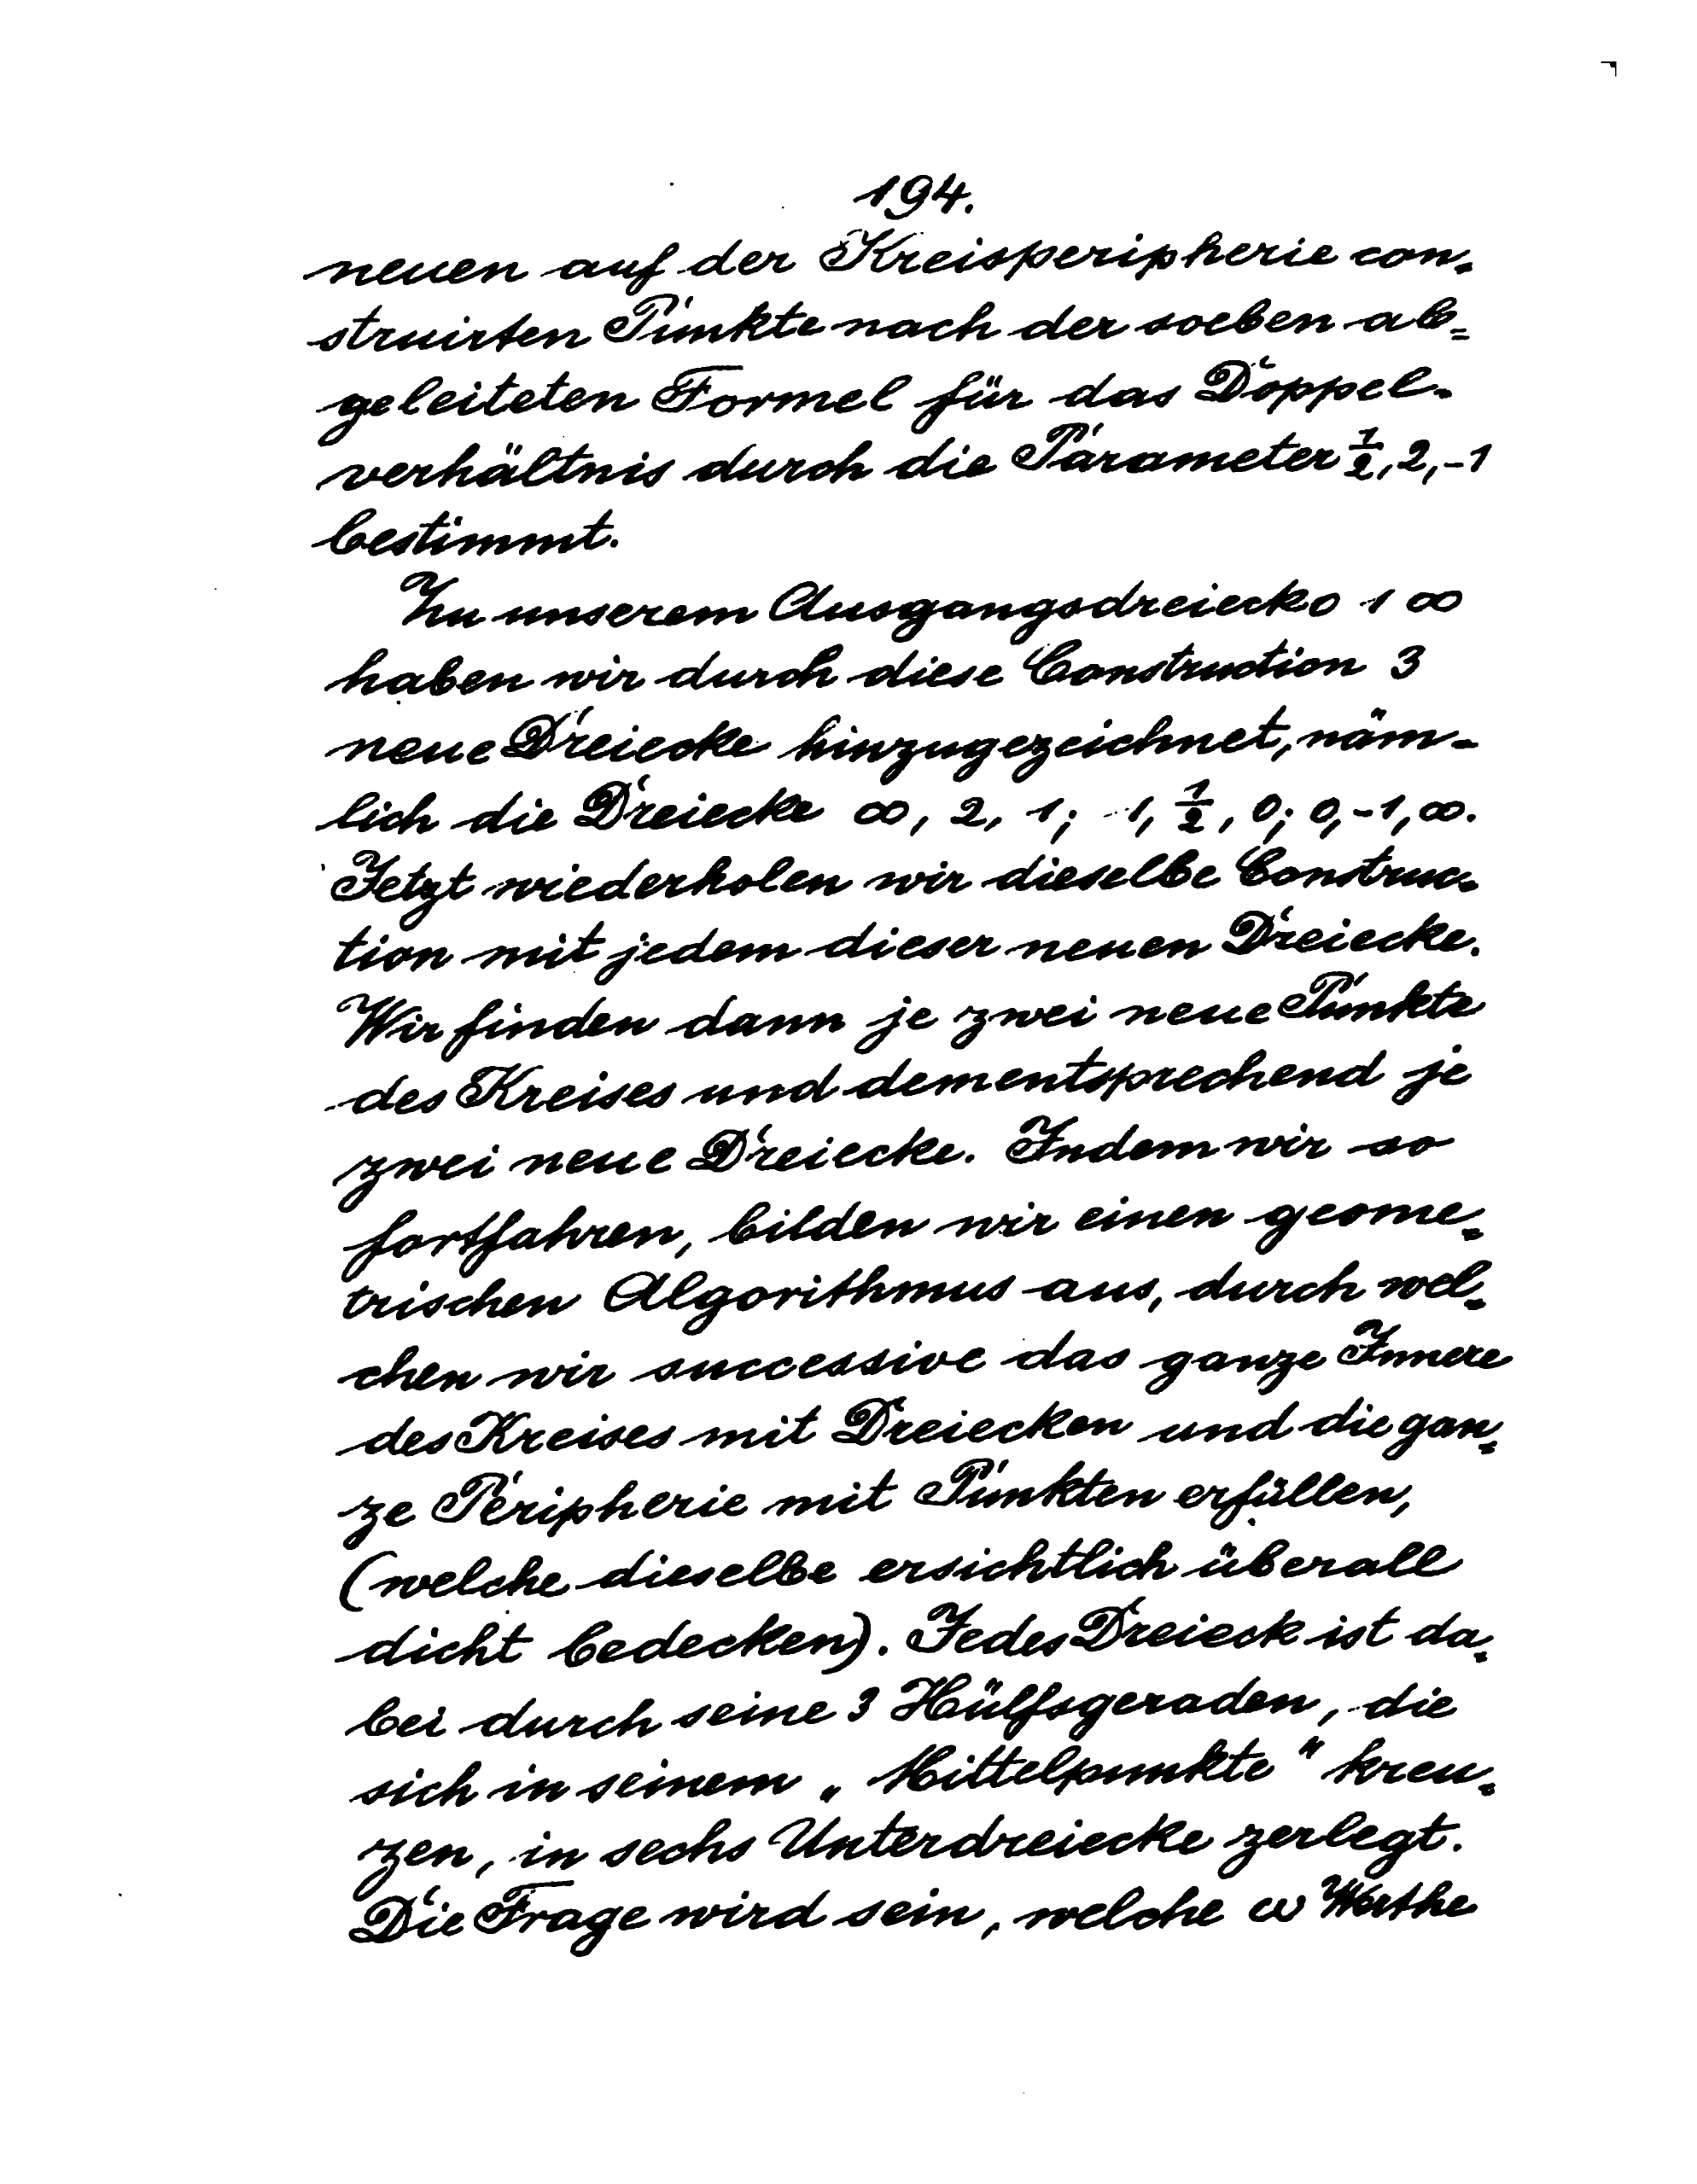 194.
neuen auf der Kreisperipherie con-
struirten Punkte nach der soeben ab-
geleiteten Formel für das Doppel-
verhältnis durch die Parameter 1/2, 2, -1
bestimmt.
Zu unserem Ausgangsdreieck 0 1 ∞
haben wir durch diese Construction 3
neue Dreiecke hinzugezeichnet, näm-
lich die Dreiecke ∞, 2, 1; 1, 1/2, 0; 0, -1, ∞.
Jetzt wiederholen wir dieselbe Construc-
tion mit jedem dieser neuen Dreiecke.
Wir finden dann je zwei neue Punkte
des Kreises und dementsprechend je
zwei neue Dreiecke. Indem wir so
fortfahren, bilden wir einen geome-
trischen Algorithmus aus, durch wel-
chen wir successive das ganze Innere
des Kreises mit Dreiecken und die gan-
ze Peripherie mit Punkten erfüllen,
(welche dieselbe ersichtlich überall
dicht bedecken). Jedes Dreieck ist da-
bei durch seine 3 Hülfsgeraden, die
sich in seinem „Mittelpunkte" kreu-
zen, in sechs Unterdreiecke zerlegt.
Die Frage wird sein, welche ω Werthe